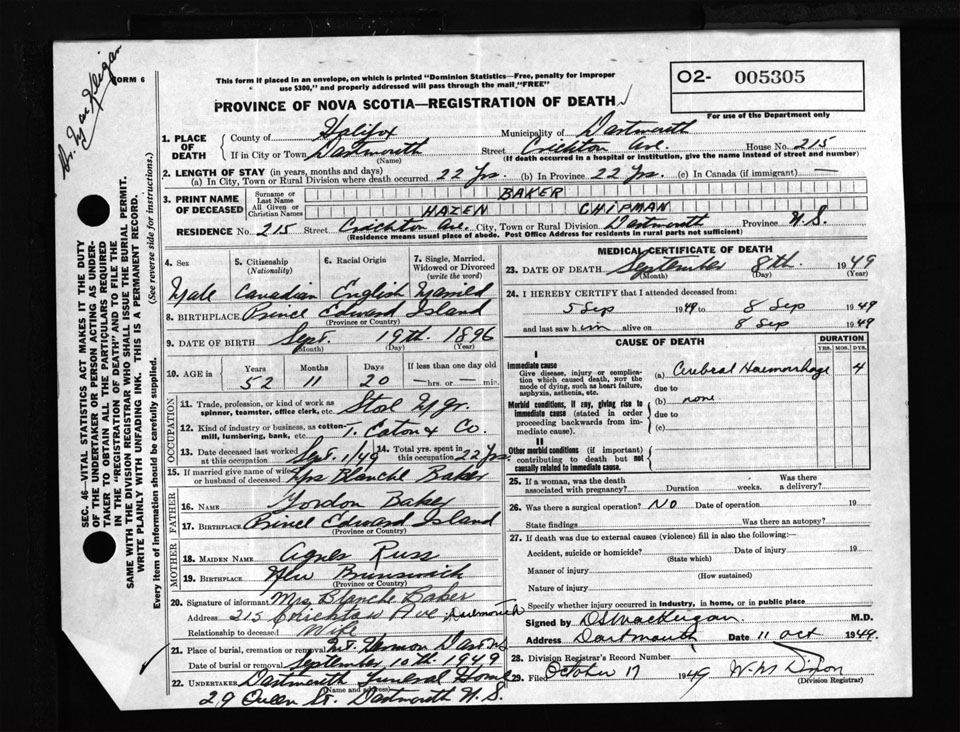 Dr. MacKeigan
FORM 6
This form if placed in an envelope, on which is printed "Dominion Statistics—Free, penalty for improper
use $300," and properly addressed will pass through the mail "FREE"
O2- 005305
For use of the Department only
PROVINCE OF NOVA SCOTIA—REGISTRATION OF DEATH
SEC. 46—VITAL STATISTICS ACT MAKES IT THE DUTY
OF THE UNDERTAKER OR PERSON ACTING AS UNDER-
TAKER TO OBTAIN ALL THE PARTICULARS REQUIRED
IN THE "REGISTRATION OF DEATH" AND TO FILE THE
SAME WITH THE DIVISION REGISTRAR WHO SHALL ISSUE THE BURIAL PERMIT.
WRITE PLAINLY WITH UNFADING INK. THIS IS A PERMANENT RECORD.
Every item of Information should be carefully supplied. (See reverse side for instructions.)
1. PLACE OF DEATH County of Halifax Municipality of Dartmouth
If in City or Town Dartmouth Street Crichton Ave. House No. 215
(Name) (If death occurred in a hospital or institution, give the name instead of street and number)
2. LENGTH OF STAY (in years, months and days)
(a) In City, Town or Rural Division where death occurred 22 Yrs. (b) In Province 22 Yrs. (c) In Canada (if immigrant) —
3. PRINT NAME OF DECEASED Surname or Last Name BAKER
All Given or Christian Names HAZEN CHIPMAN
RESIDENCE No. 215 Street Crichton Ave. City, Town or Rural Division Dartmouth Province N.S.
(Residence means usual place of abode. Post Office Address for residents in rural parts not sufficient)
4. Sex 5. Citizenship (Nationality) 6. Racial Origin 7. Single, Married, Widowed or Divorced (write the word)
Male Canadian English Married
8. BIRTHPLACE Prince Edward Island
(Province or Country)
9. DATE OF BIRTH Sept. 19th. 1896
(Month) (Day) (Year)
10. AGE in Years Months Days If less than one day old
52 11 20 —hrs. or —min.
OCCUPATION
11. Trade, profession, or kind of work as
spinner, teamster, office clerk, etc. Store Mgr.
12. Kind of industry or business, as cotton-
mill, lumbering, bank, etc. T. Eaton & Co.
13. Date deceased last worked at this occupation Sept. 1/49 14. Total yrs. spent in this occupation 22 Yrs.
15. If married give name of wife or husband of deceased Mrs Blanche Baker
FATHER
16. NAME Gordon Baker
17. BIRTHPLACE Prince Edward Island
(Province or Country)
MOTHER
18. MAIDEN NAME Agnes Russ
19. BIRTHPLACE New Brunswick
(Province or Country)
20. Signature of informant Mrs. Blanche Baker
Address 215 Crichton Ave Dartmouth
Relationship to deceased Wife
21. Place of burial, cremation or removal Mt. Hermon Dart. N.S
Date of burial or removal September 10th 1949
22. UNDERTAKER Dartmouth Funeral Home
(Name and address)
29 Queen St. Dartmouth N.S.
MEDICAL CERTIFICATE OF DEATH
23. DATE OF DEATH September 8th. 1949
(Month) (Day) (Year)
24. I HEREBY CERTIFY that I attended deceased from:
5 Sep 1949 to 8 Sep 1949
and last saw him alive on 8 Sep 1949
CAUSE OF DEATH DURATION
YRS. MOS. DYS.
I
Immediate cause
Give disease, injury or complica-
tion which caused death, not the
mode of dying, such as heart failure,
asphyxia, asthenia, etc.
(a) Cerebral Haemorrhage 4
due to
Morbid conditions, if any, giving rise to
immediate cause (stated in order
proceeding backwards from im-
mediate cause).
(b) none
due to
(c)
II
Other morbid conditions (if important)
contributing to death but not
causally related to immediate cause.
25. If a woman, was the death Was there
associated with pregnancy? Duration weeks. a delivery?
26. Was there a surgical operation? NO Date of operation 19
State findings Was there an autopsy?
27. If death was due to external causes (violence) fill in also the following:—
Accident, suicide or homicide? Date of injury 19
(State which)
Manner of injury
(How sustained)
Nature of injury
Specify whether injury occurred in industry, in home, or in public place
Signed by DS MacKeigan M.D.
Address Dartmouth Date 11 Oct 1949.
28. Division Registrar's Record Number
29. Filed October 17 1949 W.M Dixon
(Division Registrar)